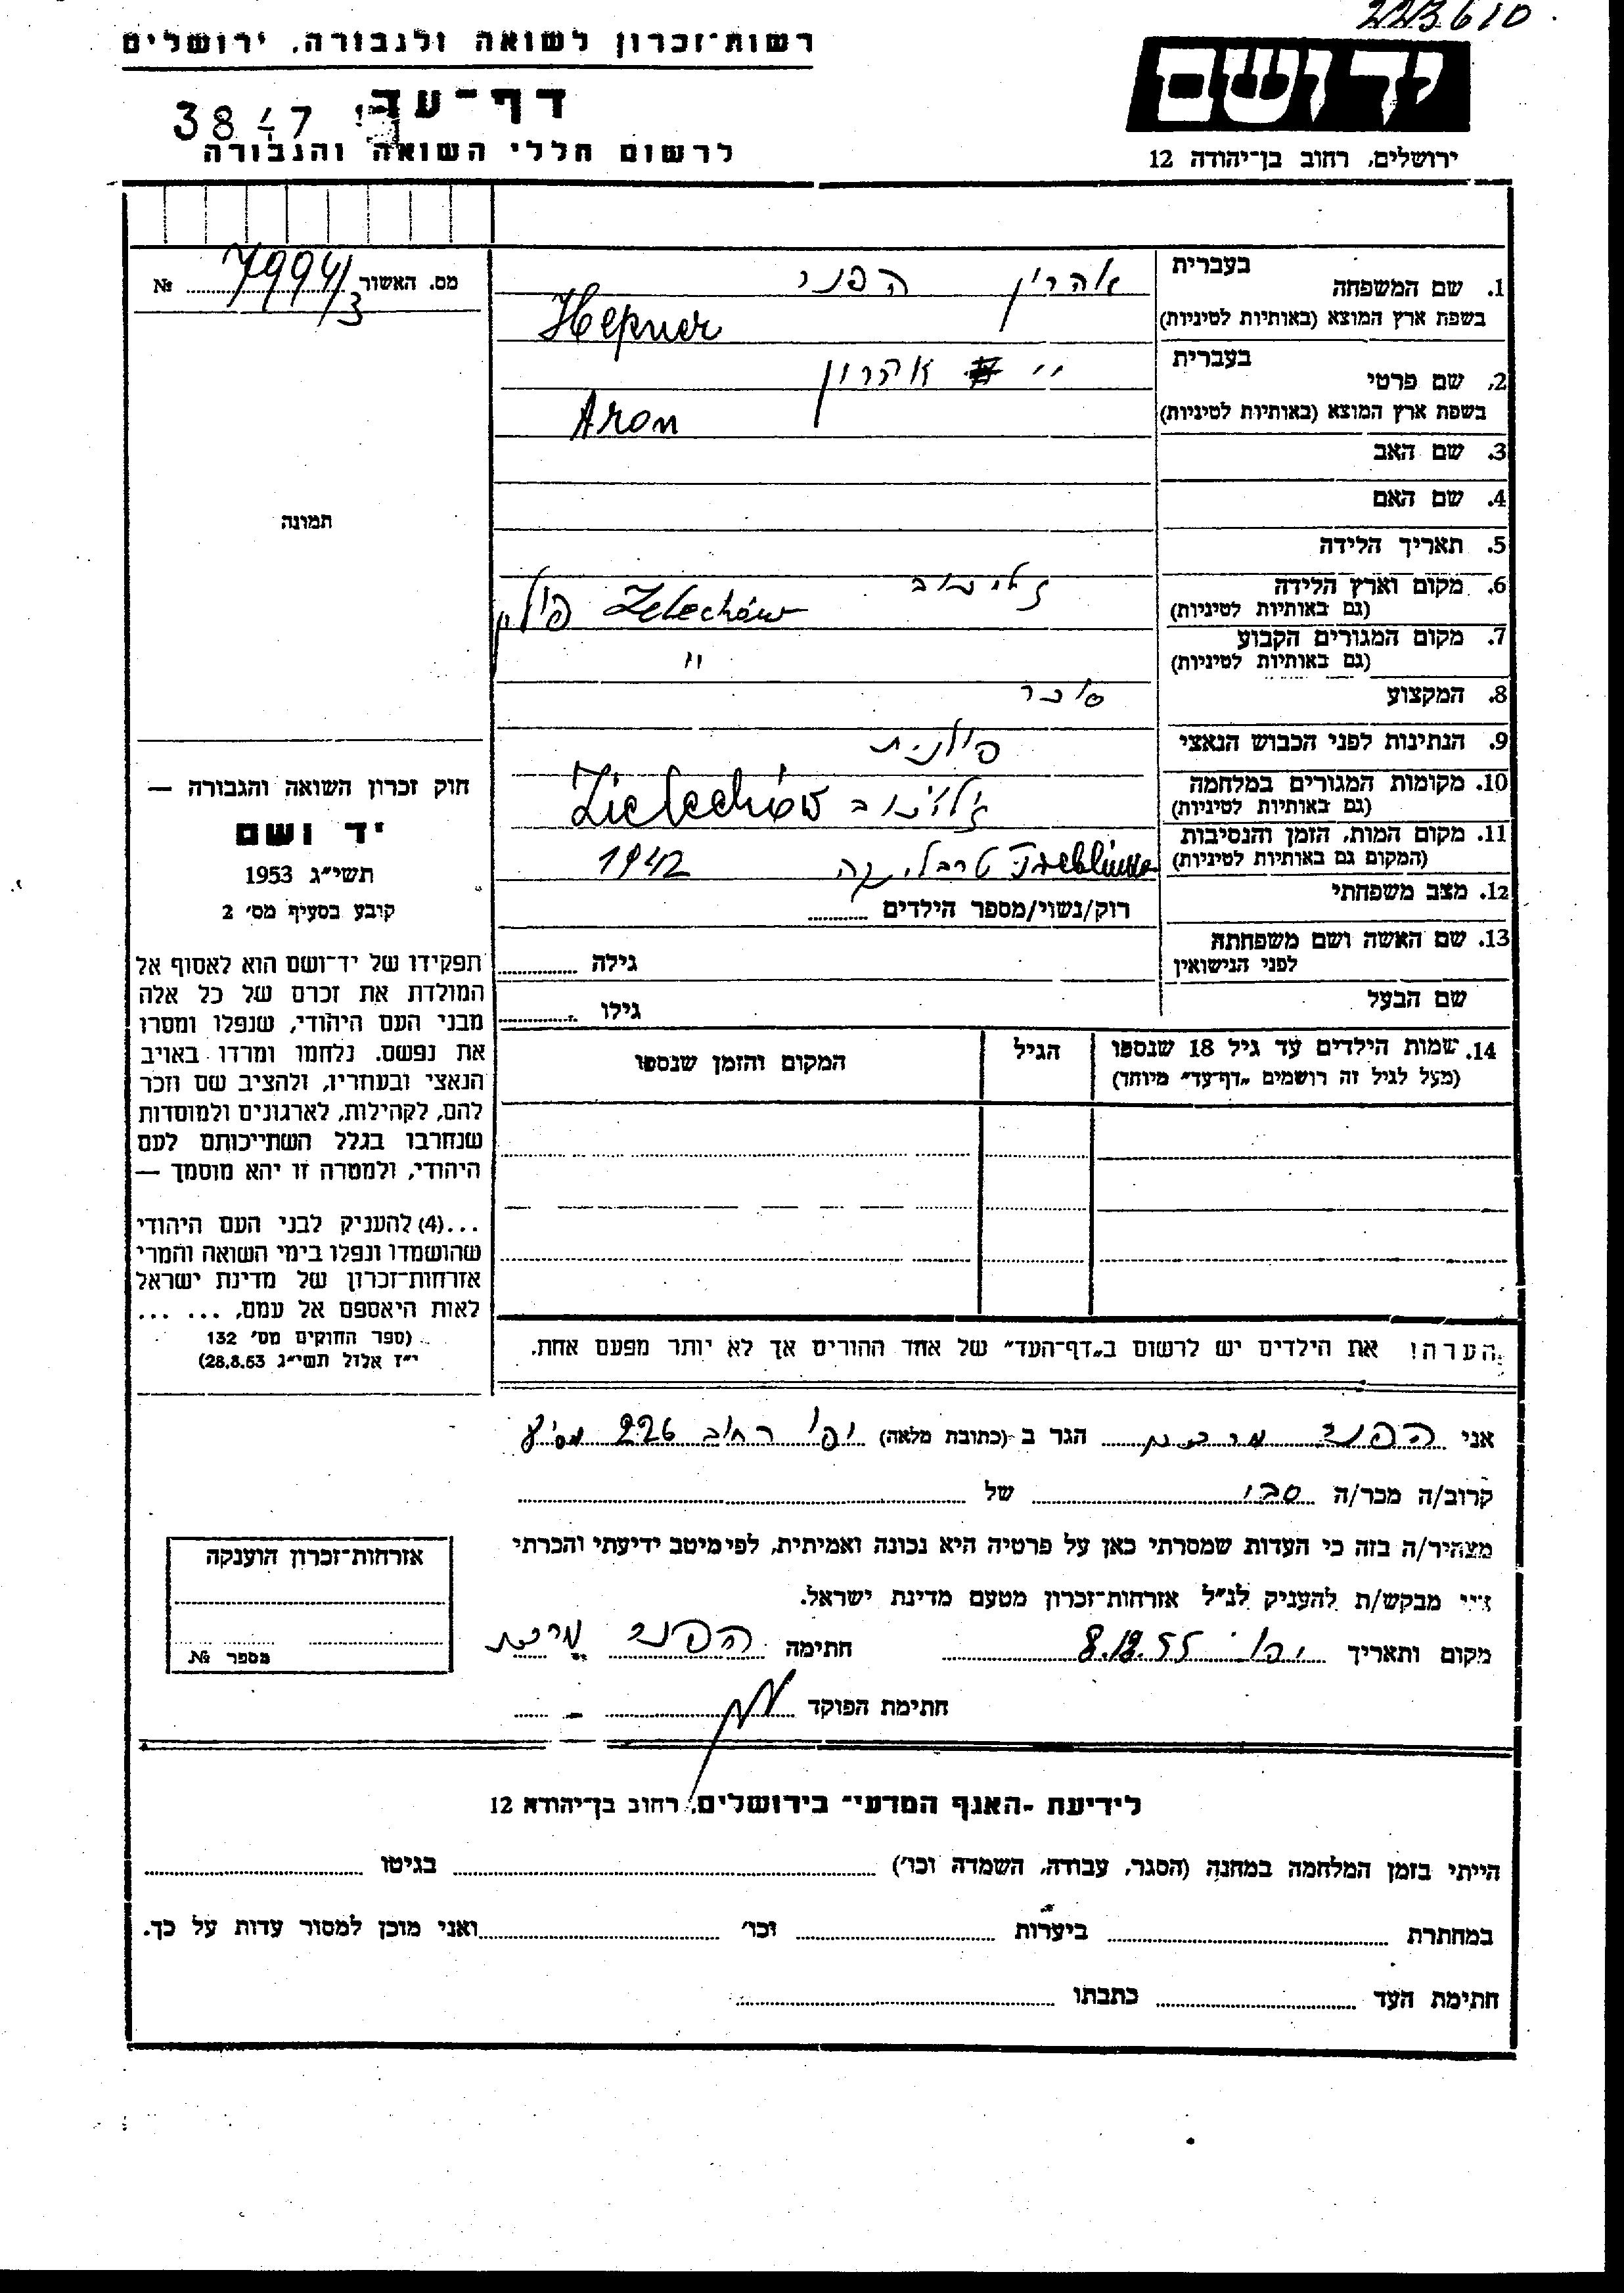 223610
רשות־זכרון לשואה ולגבורה, ירושלים
יד ושם
דף־עד
3847
לרשום חללי השואה והגבורה
ירושלים, רחוב בן־יהודה 12
מס. האשור 79941/3 №
תמונה
1. שם המשפחה בעברית אהרון הפנר
בשפת ארץ המוצא (באותיות לטיניות) Hepner
2. שם פרטי בעברית " אהרון
בשפת ארץ המוצא (באותיות לטיניות) Aron
3. שם האב
4. שם האם
5. תאריך הלידה
6. מקום וארץ הלידה
(גם באותיות לטיניות) Zelechów פולין
7. מקום המגורים הקבוע "
(גם באותיות לטיניות)
8. המקצוע סוחר
9. הנתינות לפני הכבוש הנאצי פולנית
10. מקומות המגורים במלחמה
(גם באותיות לטיניות) Zielechów
11. מקום המות, הזמן והנסיבות
(המקום גם באותיות לטיניות) Treblinka טרבלינקה 1942
12. מצב משפחתי
רוק/נשוי/מספר הילדים
13. שם האשה ושם משפחתה
לפני הנישואין
גילה
שם הבעל
גילו
14. שמות הילדים עד גיל 18 שנספו
(מעל לגיל זה רושמים „דף־עד" מיוחד)
הגיל
המקום והזמן שנספו
חוק זכרון השואה והגבורה —
יד ושם
תשי״ג 1953
קובע בסעיף מס׳ 2
תפקידו של יד־ושם הוא לאסוף אל
המולדת את זכרם של כל אלה
מבני העם היהודי, שנפלו ומסרו
את נפשם, נלחמו ומרדו באויב
הנאצי ובעוזריו, ולהציב שם וזכר
להם, לקהילות, לארגונים ולמוסדות
שנחרבו בגלל השתייכותם לעם
היהודי, ולמטרה זו יהא מוסמך —
...(4) להעניק לבני העם היהודי
שהושמדו ונפלו בימי השואה והמרי
אזרחות־זכרון של מדינת ישראל
לאות היאספם אל עמם, ... ...
(ספר החוקים מס׳ 132
י״ז אלול תשי״ג 28.8.53)
הערה! את הילדים יש לרשום ב„דף־העד" של אחד ההורים אך לא יותר מפעם אחת.
אני הפנר הגר ב (כתובת מלאה) יפו רחוב 226
קרוב/ה מכר/ה סבי של
מצהיר/ה בזה כי העדות שמסרתי כאן על פרטיה היא נכונה ואמיתית, לפי מיטב ידיעתי והכרתי
מבקש/ת להעניק לנ״ל אזרחות־זכרון מטעם מדינת ישראל.
מקום ותאריך יפו 8.12.55 חתימה הפנר
חתימת הפוקד
אזרחות־זכרון הוענקה
מספר №
לידיעת „האגף המדעי" בירושלים, רחוב בן־יהודה 12
הייתי בזמן המלחמה במחנה (הסגר, עבודה, השמדה וכו׳) בגיטו
במחתרת ביערות וכו׳ ואני מוכן למסור עדות על כך.
חתימת העד כתבתו